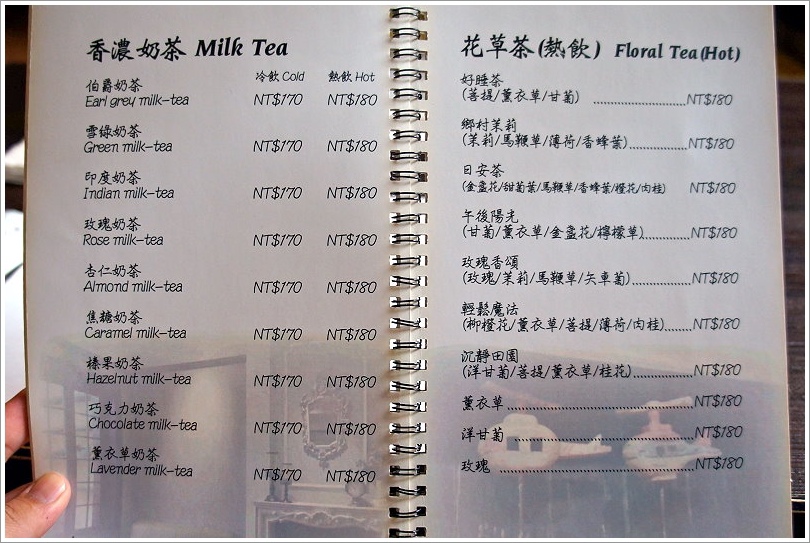 香濃奶茶 Milk Tea
冷飲 Cold 熱飲 Hot
伯爵奶茶
Earl grey milk-tea NT$170 NT$180
雪綠奶茶
Green milk-tea NT$170 NT$180
印度奶茶
Indian milk-tea NT$170 NT$180
玫瑰奶茶
Rose milk-tea NT$170 NT$180
杏仁奶茶
Almond milk-tea NT$170 NT$180
焦糖奶茶
Caramel milk-tea NT$170 NT$180
榛果奶茶
Hazelnut milk-tea NT$170 NT$180
巧克力奶茶
Chocolate milk-tea NT$170 NT$180
薰衣草奶茶
Lavender milk-tea NT$170 NT$180
花草茶(熱飲) Floral Tea(Hot)
好睡茶
(菩提/薰衣草/甘菊) NT$180
鄉村茉莉
(茉莉/馬鞭草/薄荷/香蜂葉) NT$180
日安茶
(金盞花/甜菊葉/馬鞭草/香蜂葉/橙花/肉桂) NT$180
午後陽光
(甘菊/薰衣草/金盞花/檸檬草) NT$180
玫瑰香頌
(玫瑰/茉莉/馬鞭草/矢車菊) NT$180
輕鬆魔法
(柳橙花/薰衣草/菩提/薄荷/肉桂) NT$180
沉靜田園
(洋甘菊/菩提/薰衣草/桂花) NT$180
薰衣草 NT$180
洋甘菊 NT$180
玫瑰 NT$180